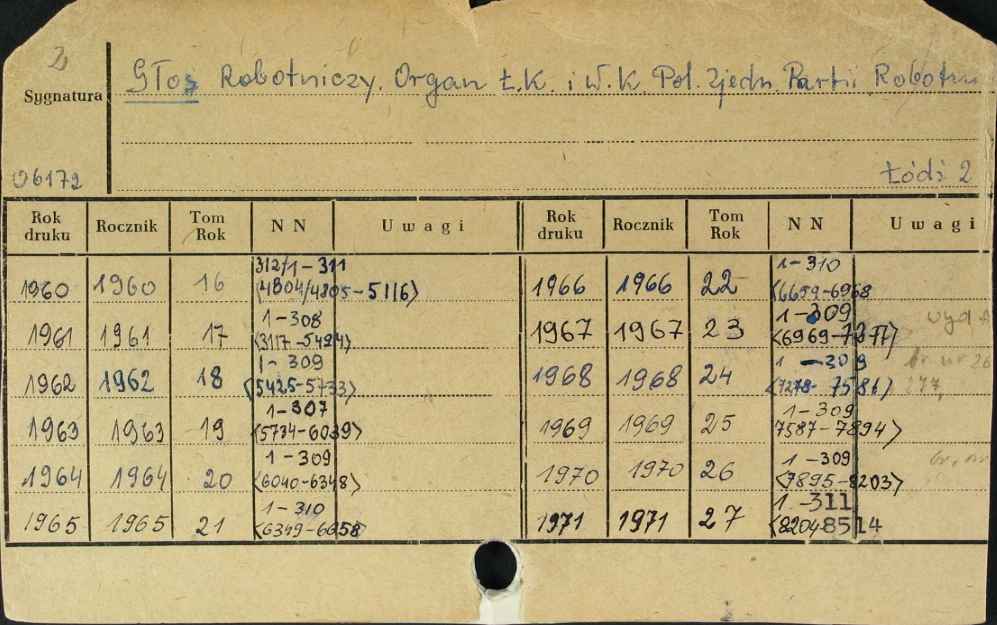 2
Sygnatura Głos Robotniczy. Organ Ł.K. i W.K. Pol. Zjedn. Partii Robotn
06172 Łódź 2
Rok druku Rocznik Tom Rok N N U w a g i Rok druku Rocznik Tom Rok N N U w a g i
1960 1960 16 312/1-311 <4804/4805-5116> 1966 1966 22 1-310 <6659-6968
1961 1961 17 1-308 <3117-5424> 1967 1967 23 1-309 <6969-7277> wyd
1962 1962 18 1-309 <5425-5733> 1968 1968 24 1-309 <7278-7586> br nr 26 277,
1963 1963 19 1-307 <5734-6039> 1969 1969 25 1-309 7587-7894>
1964 1964 20 1-309 <6040-6348> 1970 1970 26 1-309 <7895-8203> br. nr
1965 1965 21 1-310 <6349-6658 1971 1971 27 1-311 <82048514